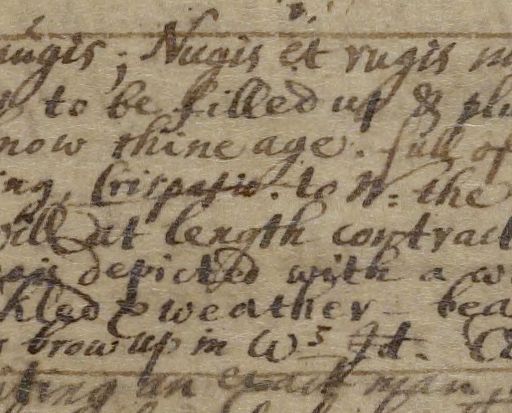 nugis; Nugis et rugis
to be filled up &
now thine age. full of
ing, Crispatio. to W: the
will at length contract
depicted with a
kled & weather - bea
brow up in Ws It.
an exact man